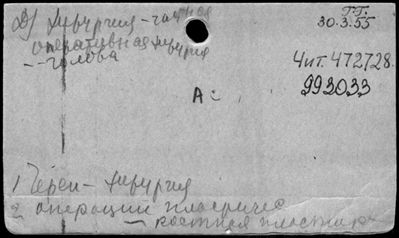 Д) хирургия - частная
оперативная хирургия
-- голова
Т.Т.
30.3.55
Чит. 472728.
993033
А:
1) Череп - хирургия
2 операции пластичес
— костная пластика